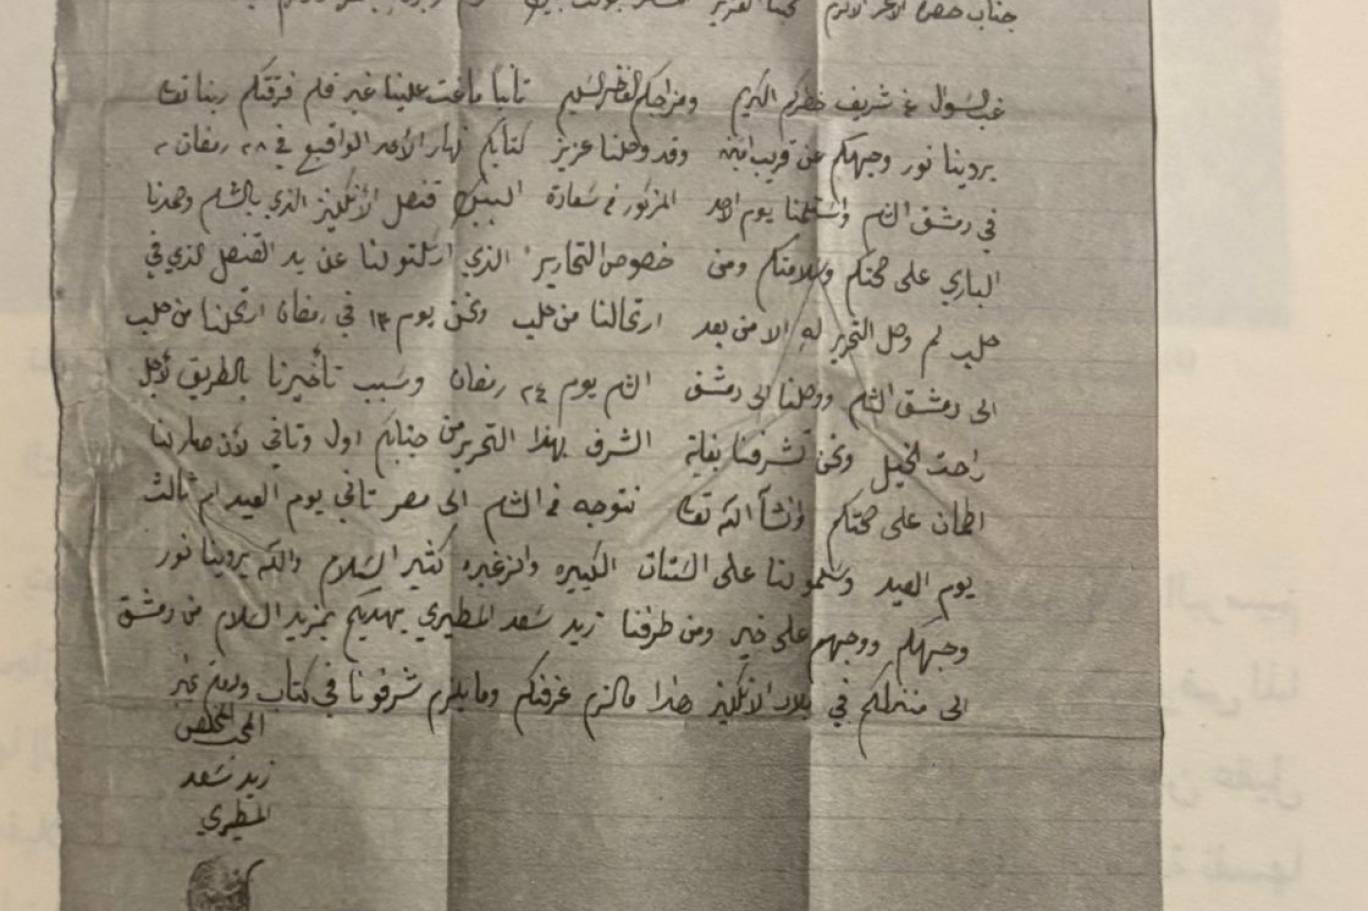 جناب حضرة الأعز الأكرم محبنا العزيز
غب السؤال عن شريف خاطركم الكريم ومزاجكم الفاخر السليم ثانيا ما غت علينا غير فلم فرقتكم ربنا تعا
يروينا نور وجهكم عن قريب وقد وصلنا عزيز كتابكم نهار الأحد الواقع في ٢٨ رمضان
في دمشق الشام واستلمنا يوم الاحد المزكور من سعادة البيك قنصل الأنكليز الذي بالشام وحمدنا
الباري على صحتكم وسلامتكم ومن خصوص التحارير الذي ارسلتو لنا عن يد القنصل الذي في
حلب لم وصل التحرير له الا من بعد ارتحالنا من حلب ونحن يوم ١٣ في رمضان ارتحلنا من حلب
الى دمشق الشام ووصلنا الى دمشق الشام يوم ٢٤ رمضان وسبب تأخيرنا بالطريق لأجل
راحت الخيل ونحن تشرفنا بغاية الشرف بهذا التحرير من جنابكم اول وثاني لأن صار لنا
اطمان على صحتكم وانشأ الله تعا نتوجه من الشام الى مصر ثاني يوم العيد ام ثالث
يوم العيد وسلمو لنا على الستات الكبيره والزغيره كثير السلام والله يروينا نور
وجهكم ووجههم على خير ومن طرفنا زيد سعد المطيري يهديكم بمزيد السلام من دمشق
الى منزلكم في بلاد الانكليز هذا مالزم عرفتكم وما يلزم شرفونا في كتاب ودمتم
المحب المخلص
زيد سعد
المطيري